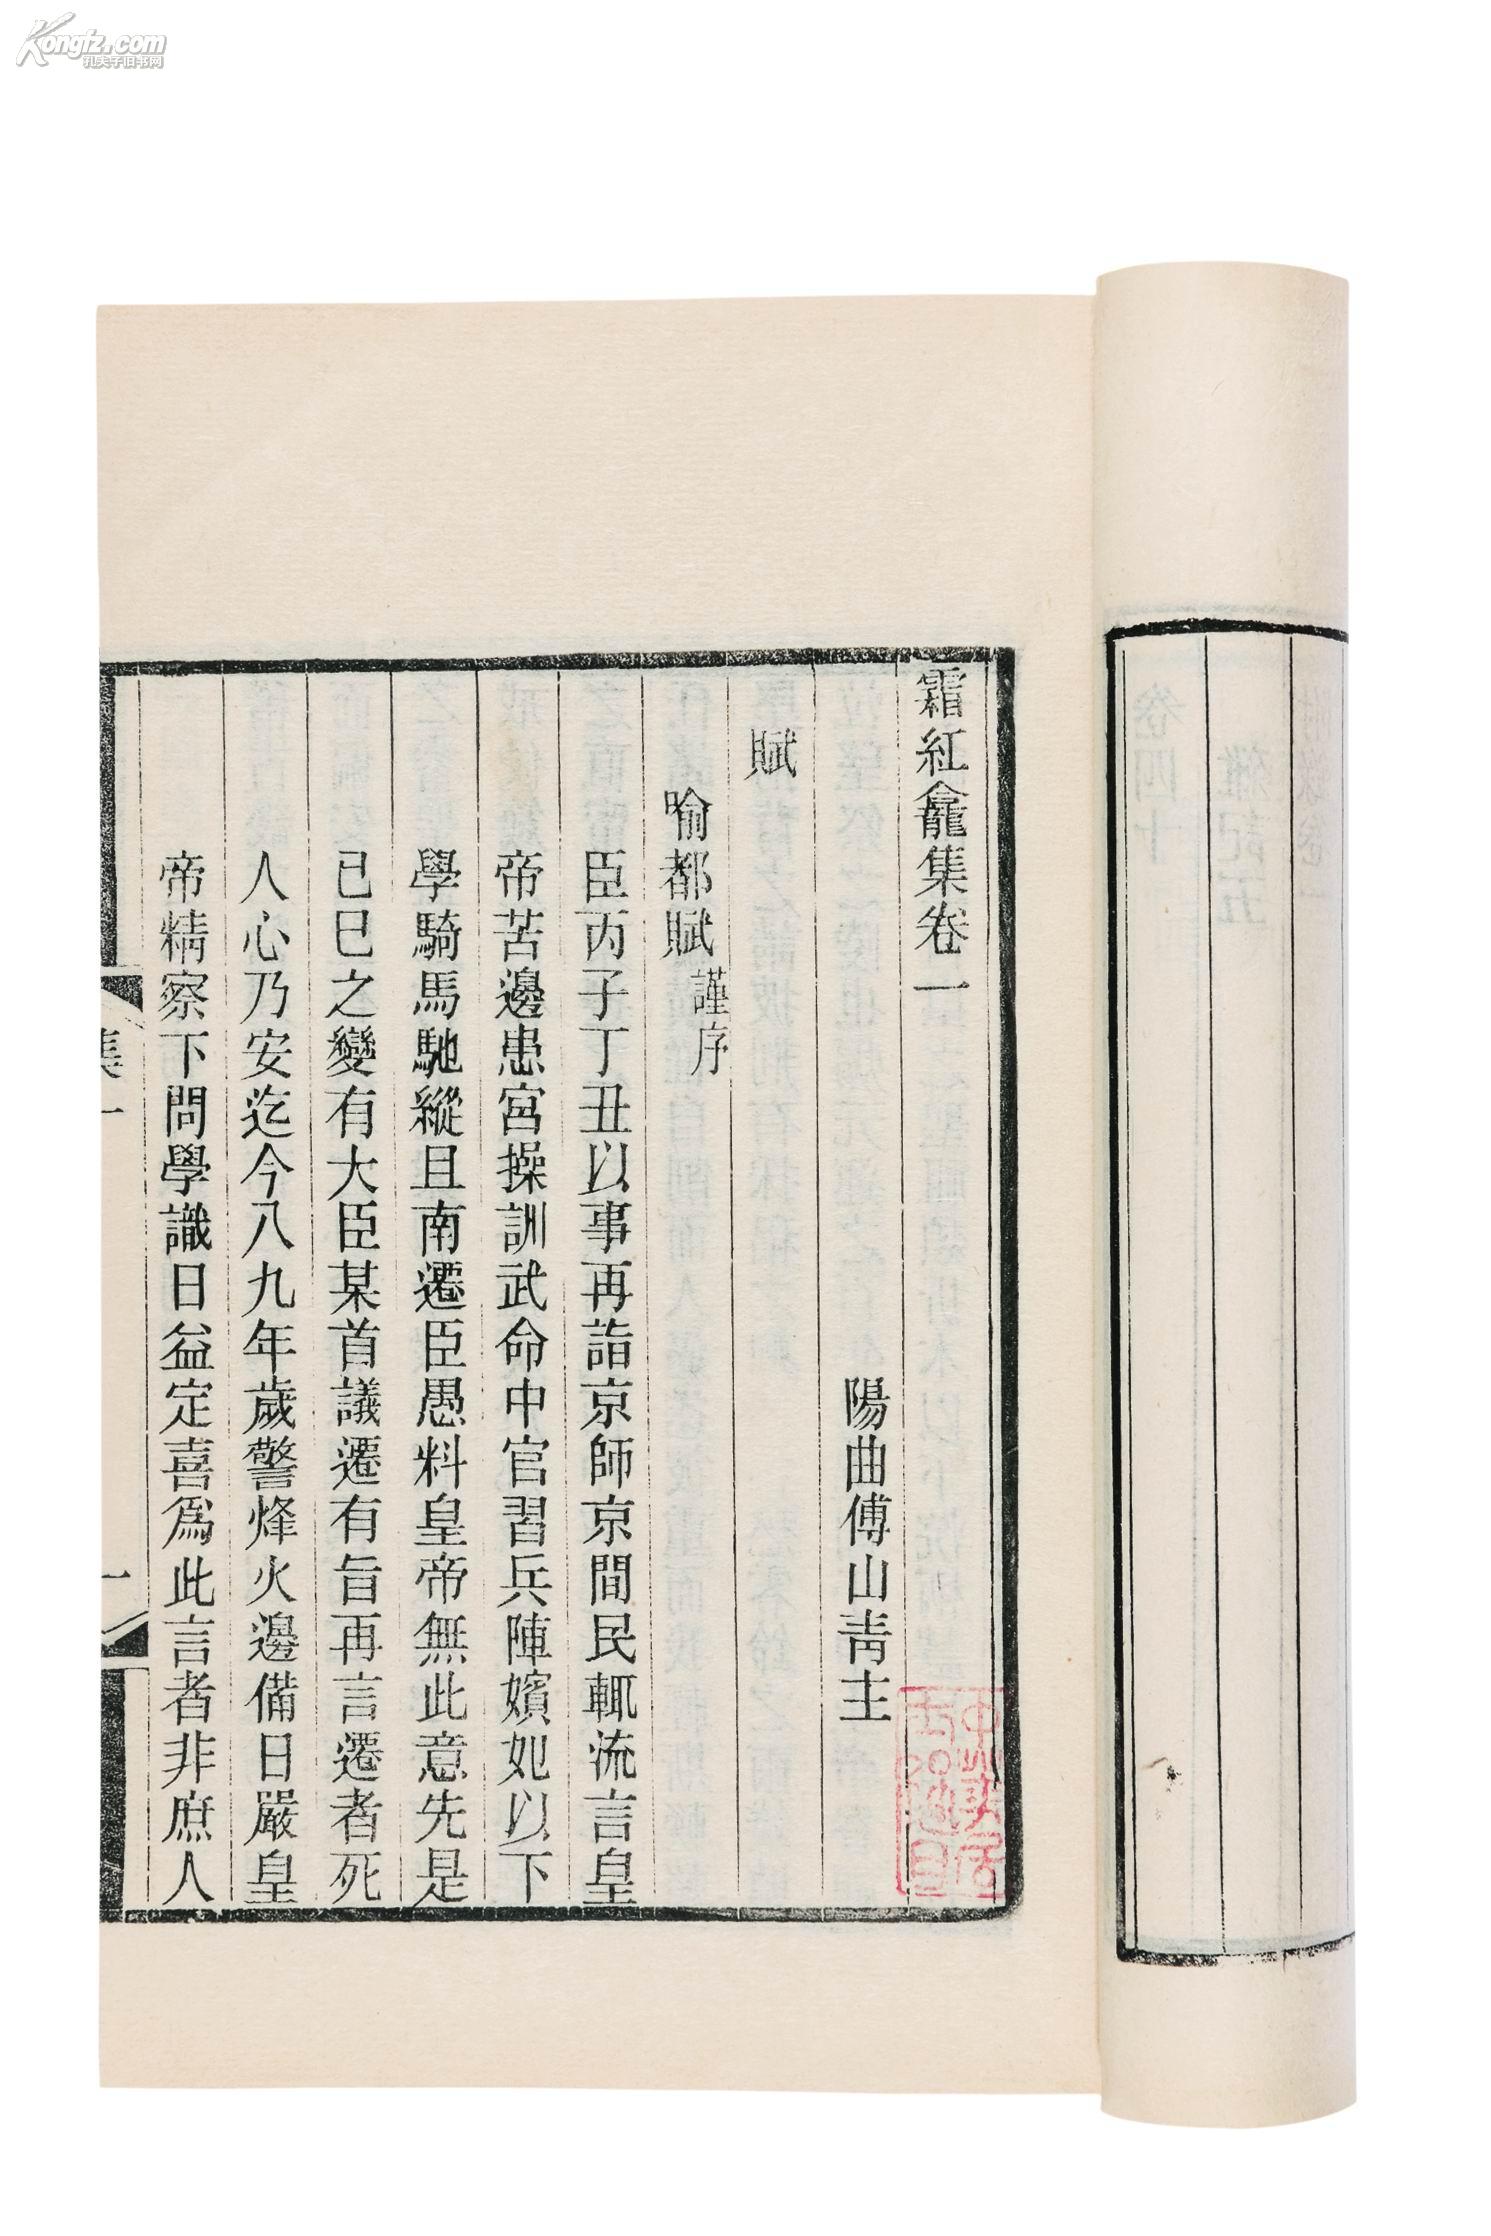 Kongfz.com
孔夫子旧书网
霜紅龕集卷一
陽曲傅山青主
賦
喻都賦謹序
臣丙子丁丑以事再詣京師京間民輒流言皇
帝苦邊患宮操訓武命中官習兵陣嬪妃以下
學騎馬馳縱且南遷臣愚料皇帝無此意先是
已巳之變有大臣某首議遷有旨再言遷者死
人心乃安迄今八九年歲警烽火邊備日嚴皇
帝精察下問學識日益定喜爲此言者非庶人
集一
一